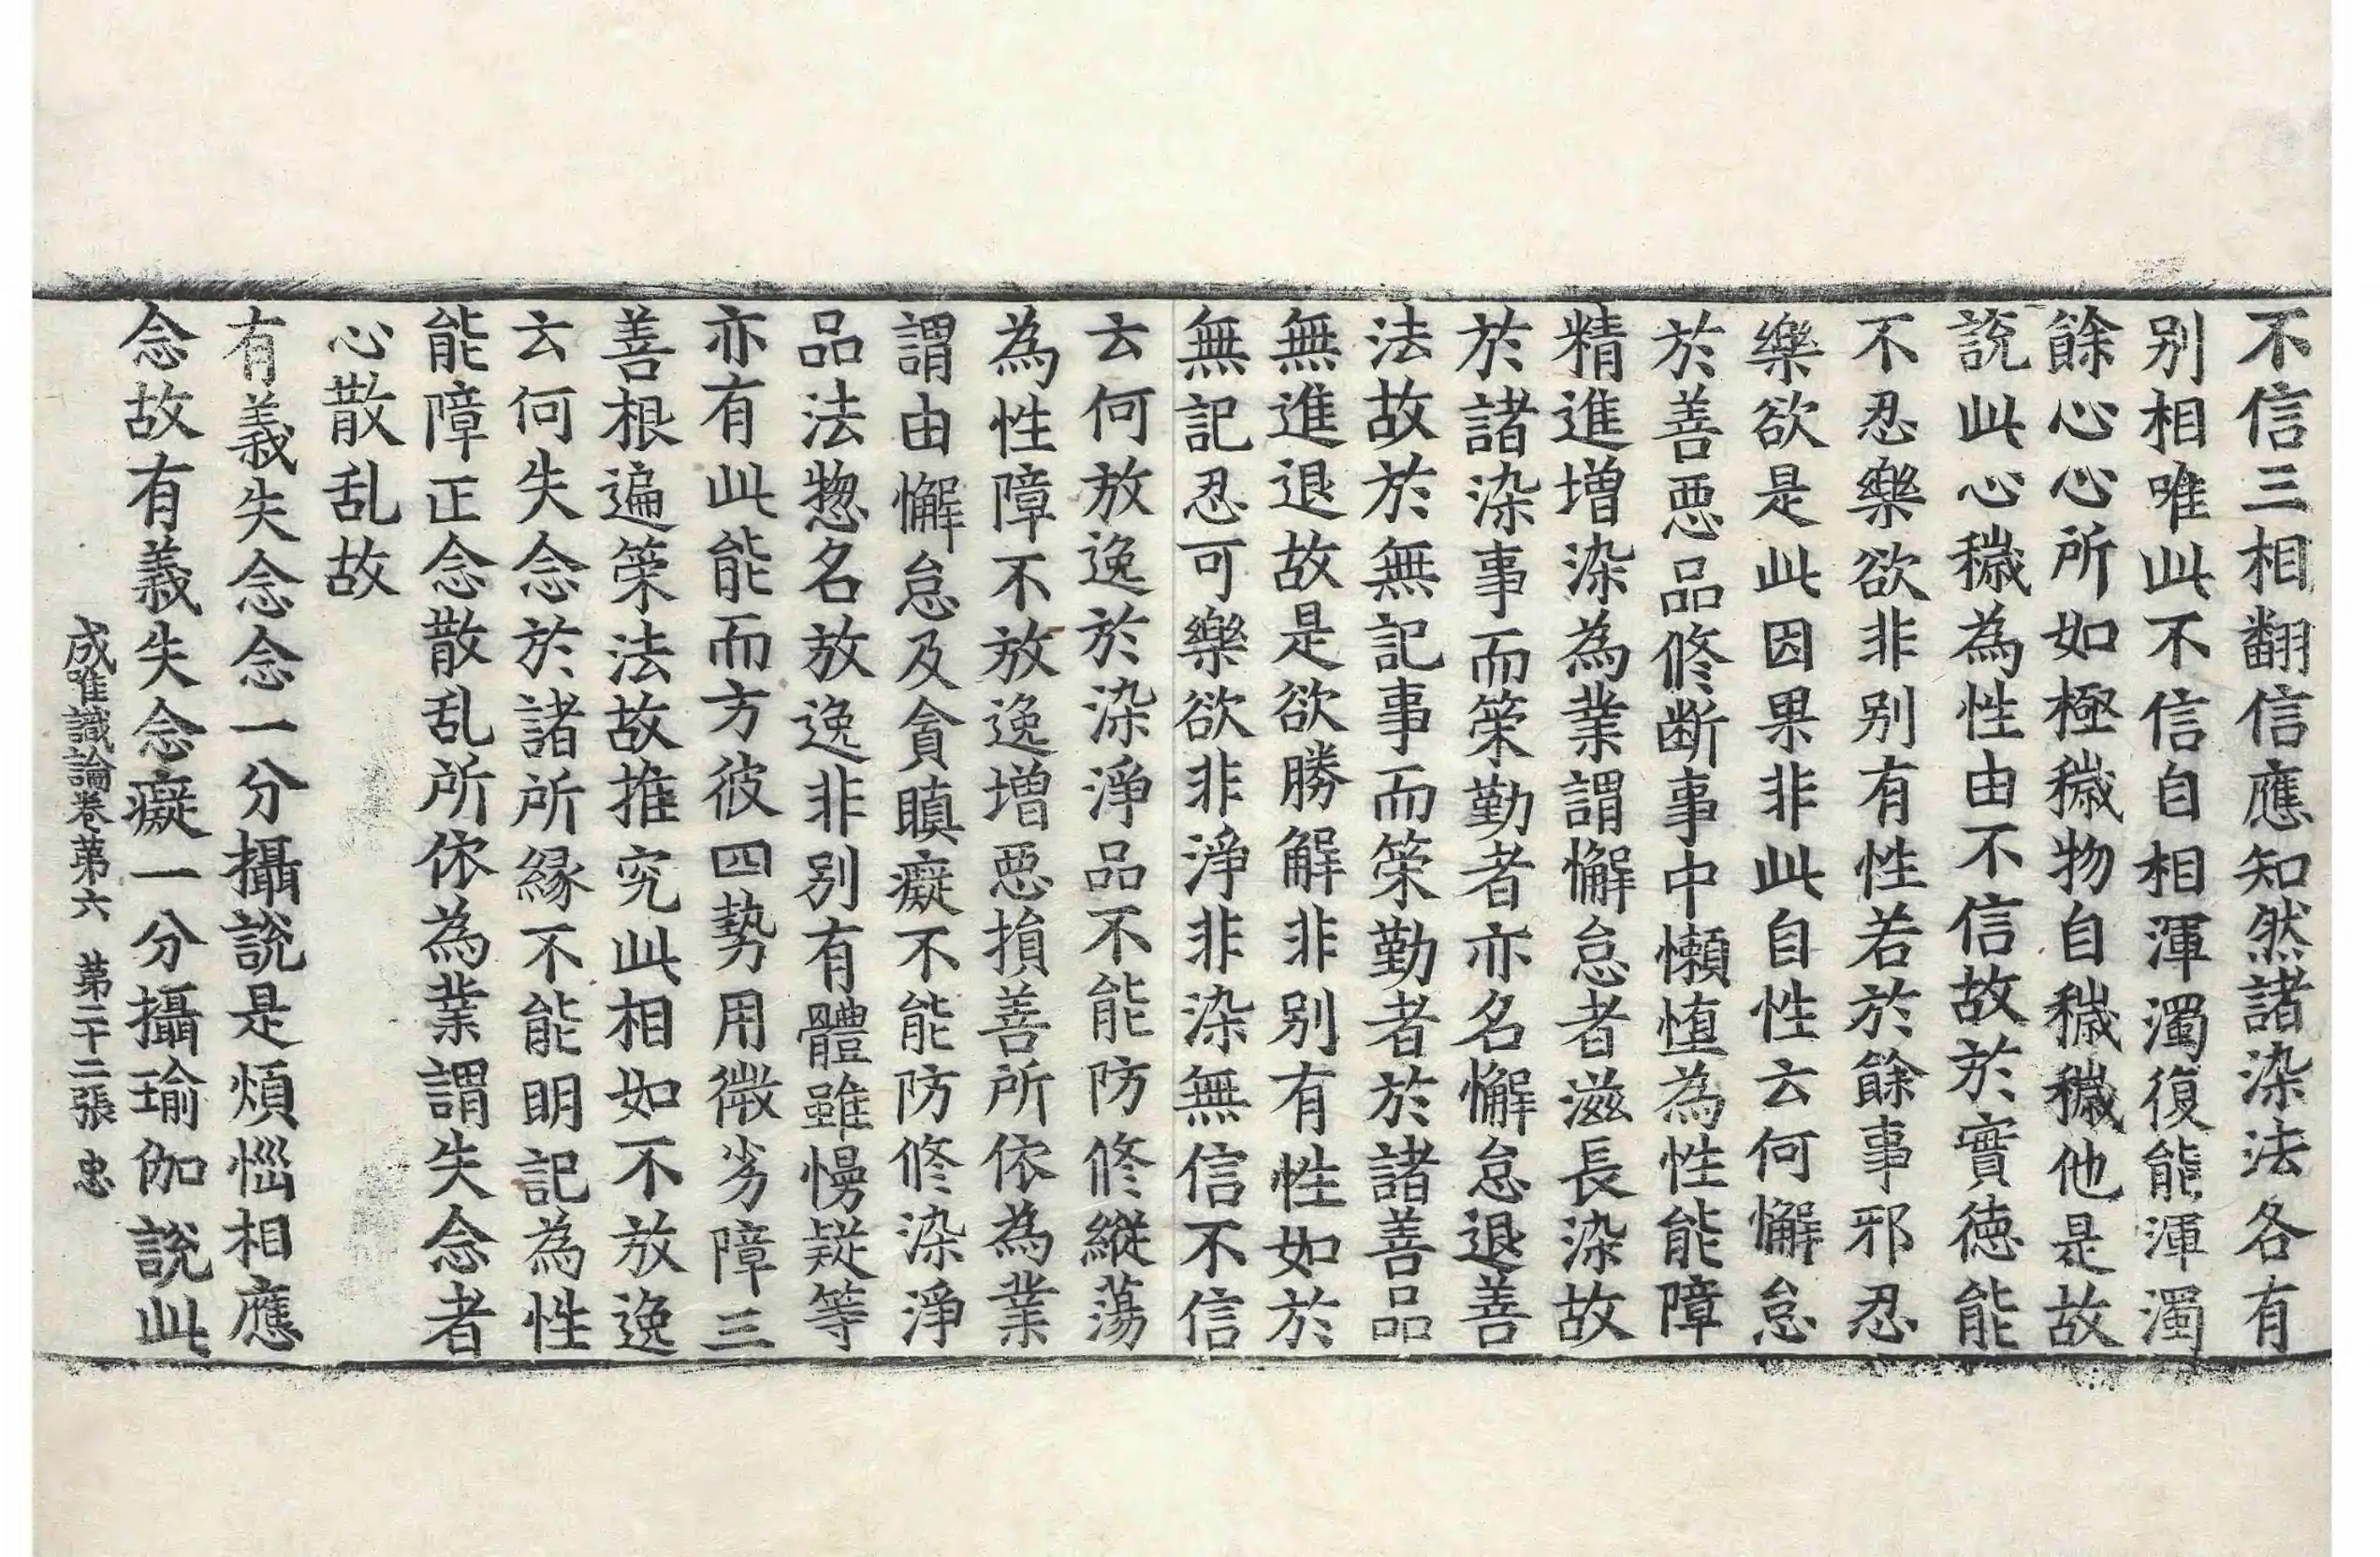 不信三相翻信應知然諸染法各有
别相唯此不信自相渾濁復能渾濁
餘心心所如極穢物自穢穢他是故
説此心穢為性由不信故於實徳能
不忍樂欲非别有性若於餘事邪忍
樂欲是此因果非此自性云何懈怠
於善惡品修断事中懶惰為性能障
精進增染為業謂懈怠者滋長染故
於諸染事而策勤者亦名懈怠退善
法故於無記事而策勤者於諸善品
無進退故是欲勝解非别有性如於
無記忍可樂欲非淨非染無信不信
云何放逸於染淨品不能防修縱蕩
為性障不放逸增惡損善所依為業
謂由懈怠及貪瞋癡不能防修染淨
品法惣名放逸非别有體雖慢疑等
亦有此能而方彼四勢用微劣障三
善根遍策法故推究此相如不放逸
云何失念於諸所緣不能明記為性
能障正念散乱所依為業謂失念者
心散乱故
有義失念念一分攝説是煩惱相應
念故有義失念癡一分攝瑜伽説此
成唯識論卷苐六 苐二十二張 忠